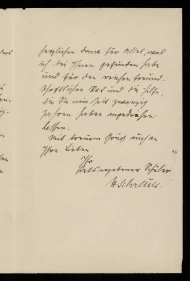 herzlichen Dank für Alles, was
ich bei Ihnen gefunden habe
und für den reichen freund-
schaftlichen Rat und die Hilfe,
die Sie mir seit zwanzig
Jahren haben angedeihen
lassen.
Mit treuem Gruss auch an
Ihre Lieben
Ihr
stets ergebener Schüler